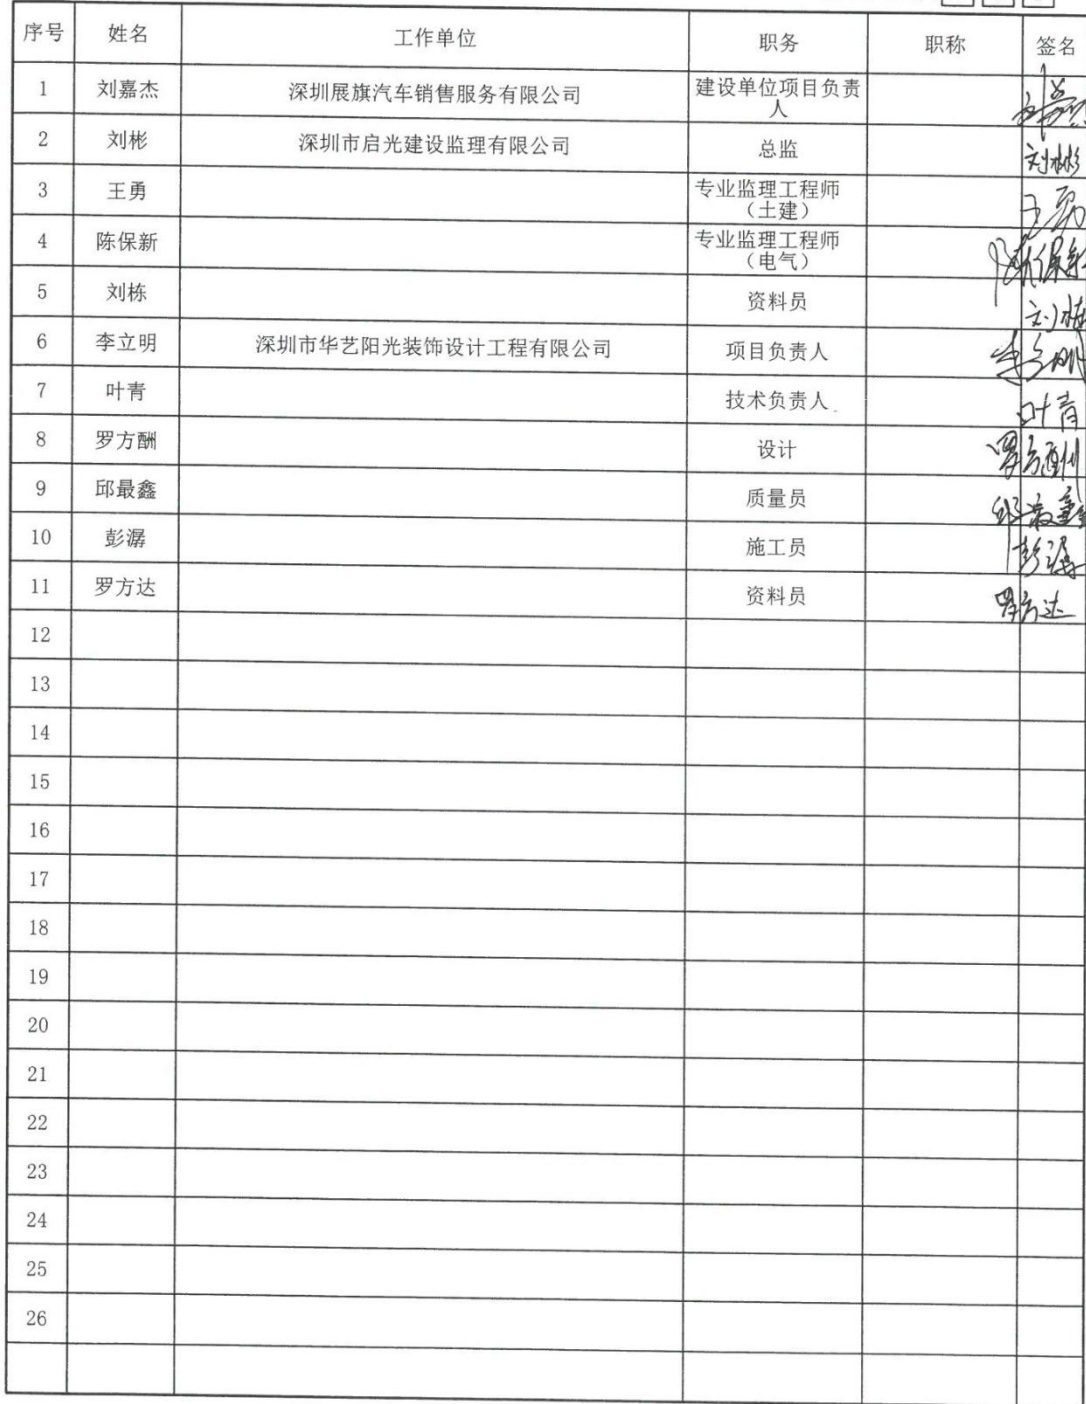 序号 姓名 工作单位 职务 职称 签名
1 刘嘉杰 深圳展旗汽车销售服务有限公司 建设单位项目负责
人
2 刘彬 深圳市启光建设监理有限公司 总监 刘彬彬
3 王勇 专业监理工程师 王勇
（土建）
4 陈保新 专业监理工程师 陈保新
（电气）
5 刘栋 资料员 刘栋
6 李立明 深圳市华艺阳光装饰设计工程有限公司 项目负责人 李立明
7 叶青 技术负责人 叶青
8 罗方酬 设计 罗方酬
9 邱最鑫 质量员 邱最鑫
10 彭潺 施工员
11 罗方达 资料员 罗方达
12
13
14
15
16
17
18
19
20
21
22
23
24
25
26